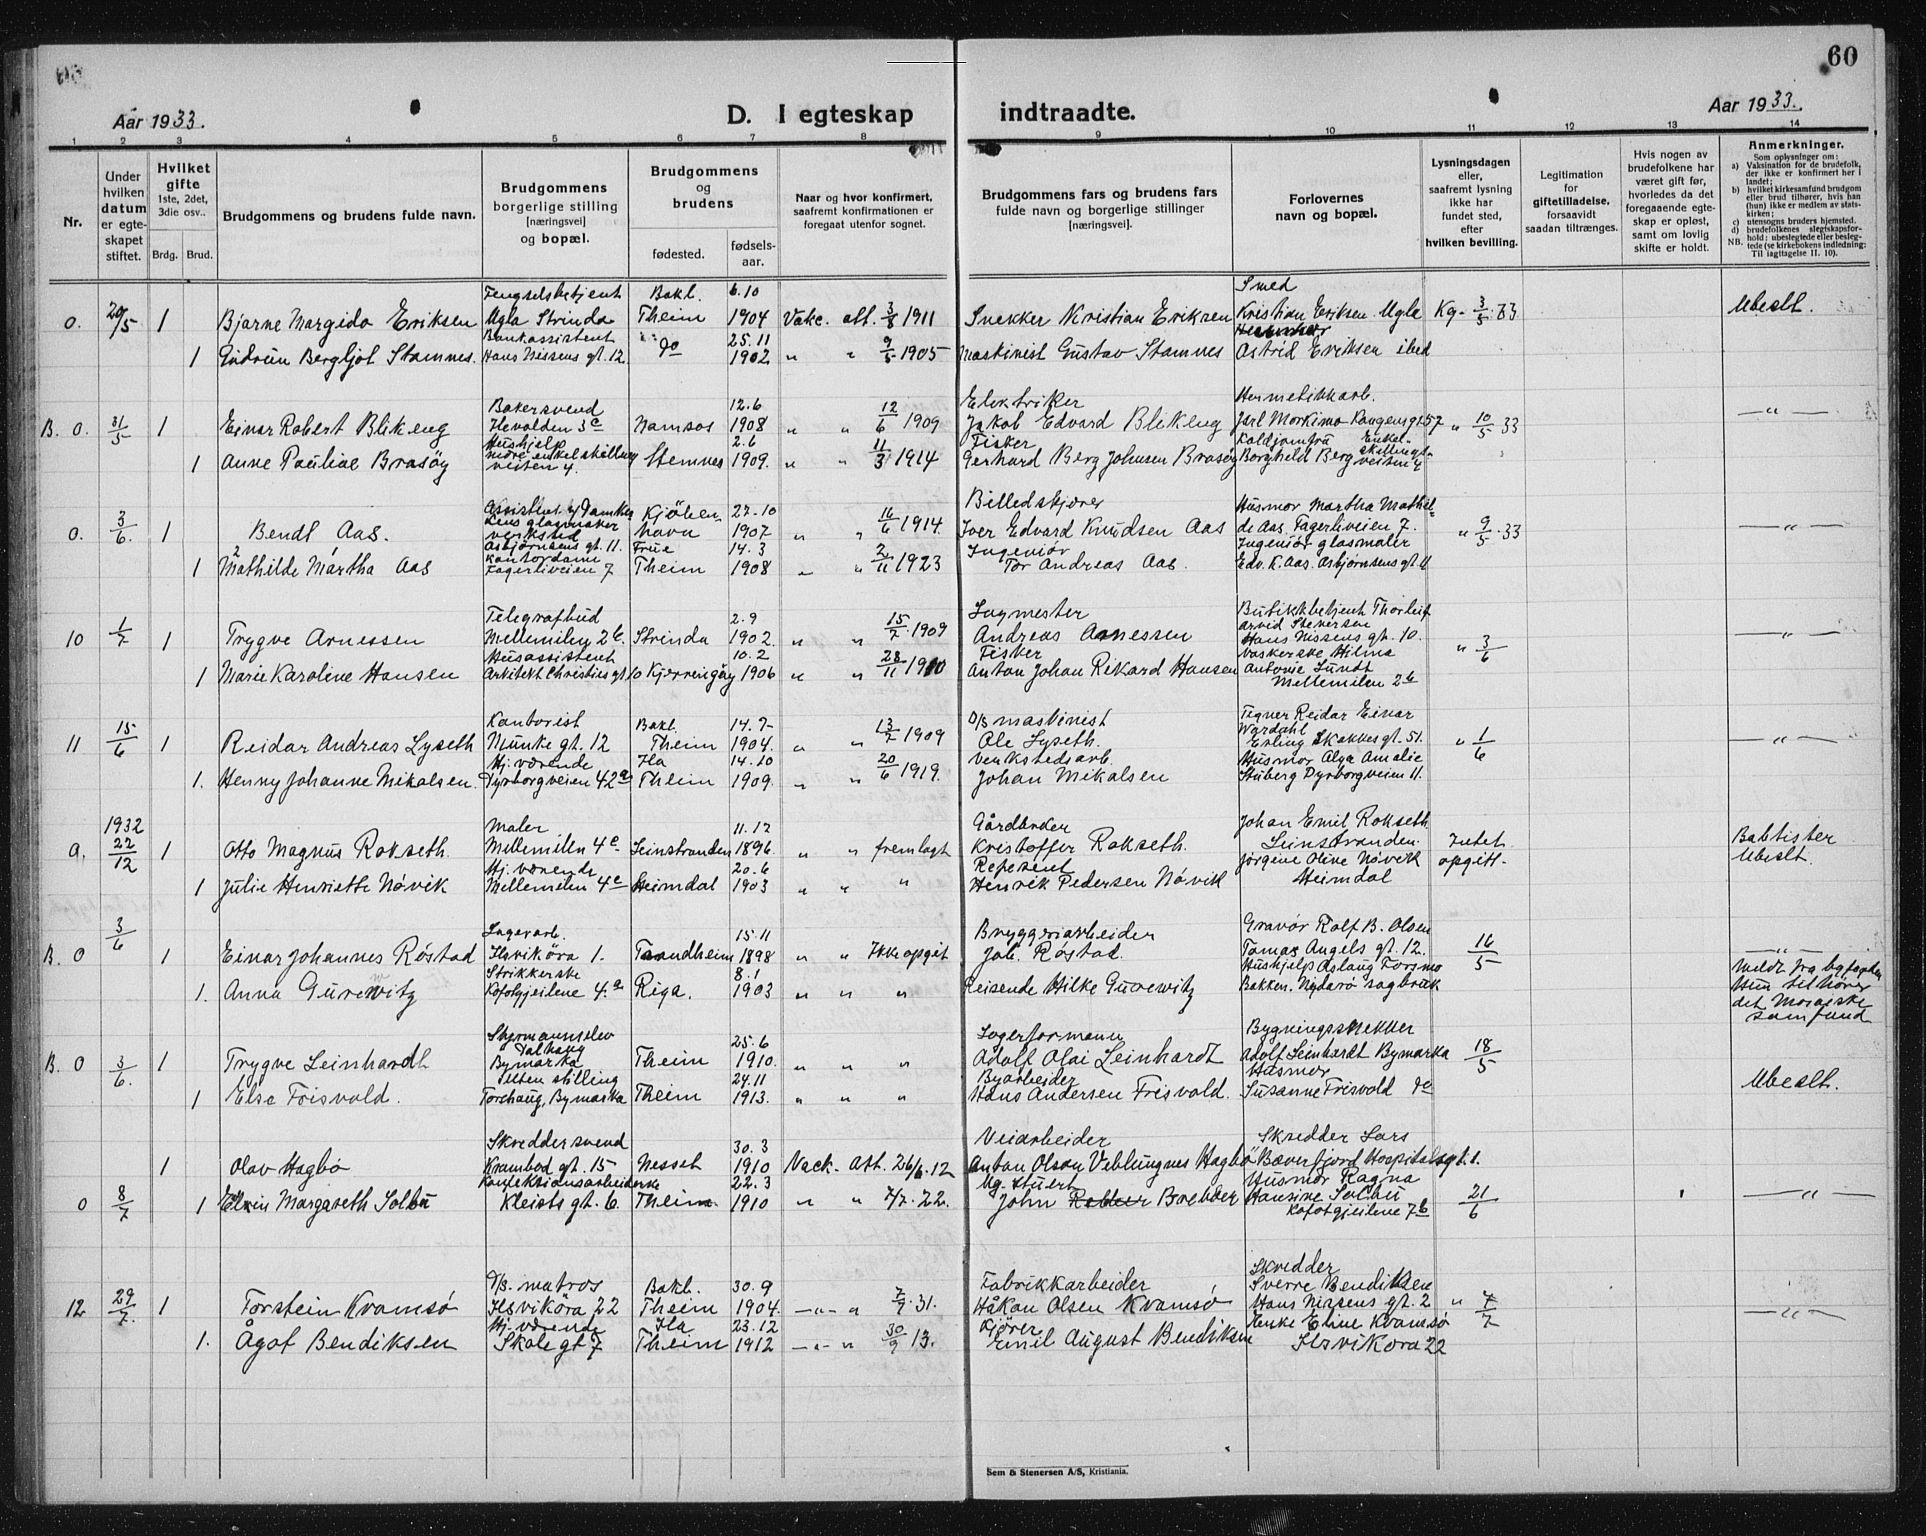 60
Aar 1933.
D. I egteskap indtraadte.
Aar 1933.
1 2 3 4 5 6 7 8 9 10 11 12 13 14
Nr.
Under hvilken datum er egteskapet stiftet.
Hvilket gifte 1ste, 2det, 3die osv..
Brdg. Brud.
Brudgommens og brudens fulde navn.
Brudgommens borgerlige stilling [næringsvei] og bopæl.
Brudgommens og brudens
fødested.
fødselsaar.
Naar og hvor konfirmert, saafremt konfirmationen er foregaat utenfor sognet.
Brudgommens fars og brudens fars fulde navn og borgerlige stillinger [næringsvei].
Forlovernes navn og bopæl.
Lysningsdagen eller, saafremt lysning ikke har fundet sted, efter hvilken bevilling.
Legitimation for giftetilladelse, forsaavidt saadan tiltrænges.
Hvis nogen av brudefolkene har været gift før, hvorledes da det foregaaende egteskap er opløst, samt om lovlig skifte er holdt.
Anmerkninger.
Som oplysninger om:
a) Vaksination de brudefolk, der ikke er konfirmert her i landet;
b) hvilket kirkesamfund brudgom eller brud tilhører, hvis han (hun) ikke er medlem av statskirken;
c) utensogns bruders hjemsted.
d) brudefolkenes slegtskapsforhold: ubeslegtede eller beslegtede (se kirkebokens indledning;
NB. Til iagttagelse II. 10).
Fengselsbetjent Bakl. 6.10 Smed
0. 20/5 1 Bjarne Margido Eriksen Ugla Strinda Theim 1904 Vakc. att. 3/8 1911 Snekker Kristian Eriksen Kristian Eriksen Ugla Kg. 3/5.33 Ubeslt.
Bankassistent 25.11
1 Gudrun Bergljot Stamnes. Hans Nissens gt. 12 do 1902 " " 9/5 1905 Maskinist Gustav Stamnes Astrid Eriksen ibed
Bakersvend 12.6 Elektriker Hermetikkarb.
B. 0. 31/5 1 Einar Robert Blikeng Hevolden 3c Namsos 1908 " " 12/6 1909 Jakob Edvard Blikeng Jarl Morkimo Kongensgt 57 " 10/5 33 — " —
Hushjelp 2.6 Fisker Koldjomfru Enkel-
1 Anne Pauline Brasöy nidre enkelskilling veiten 4. Stemnes 1909. " " 11/3 1914 Gerhard Berg Johnsen Brasöy Borghild Berg skillingsveiten 4
Assistent v/ Damkjens glasmaker 27.10 Billedskjærer Husmor Martha Mathil-
0. 3/6. 1 Bendt Aas. verksted Asbjørnsens gt. 11. Kjöbenhavn 1907 " " 16/6 1914 Iver Edvard Knudsen Aas de Aas. Fagerliveien 7. " 9/5.33 — " —
Kontordame Frue 14.3 Ingeniør Ingeniør glasmaler
1 Mathilde Martha Aas Fagerliveien 7 Theim 1908 " " 2/11 1923 Tor Andreas Aas. Edv. K. Aas. Asbjørnsens gt. 11
Telegrafbud 2.9 Sagmester Butikkbetjent Thorleif
10 1/7 1 Trygve Arnessen Mellemilen 2b. Strinda 1902. " " 15/7.1909 Andreas Arnessen Arvid Steverson Hans Nissens gt. 10. " 3/6 — " —
Husassistent 10.2 Fisker Vaskerske Hilma
1 Marie Karoline Hansen Arkitekt Christies gt. 10 Kjerringöy 1906 " " 28/11 1910 Anton Johan Rikard Hansen Antonie Lundt Mellemilen 2b
Kontorist Bakl. 14.7 D/S maskinist Tegner Reidar Einar
11 15/6 1 Reidar Andreas Lyseth Munke gt. 12 Theim 1904. " " 13/7 1909 Ole Lyseth. Wardahl Erling Skakkes gt. 51. " 1/6 — " —
Hj. værende Ila 14.10 Verkstedsarb. Husmor Alga Amalie
1. Henny Johanne Mikalsen. Dyrborgveien 42a Theim 1909. " " 20/6 1919. Johan Mikalsen Stuberg Dyrborgveien 11.
1932 Maler 11.12 Gårdbruker Johan Emil Rokseth
0. 22/12 1 Otto Magnus Rokseth. Mellemilen 4c Leinstranden 1896 " " fremlagt Kristoffer Rokseth. Leinstranden Intet opgitt. Babtister Ubeslt.
Hj. værende 20.6 Repesent Jörgine Olive Növik
1 Julie Henriette Növik Mellemilen 4c Heimdal 1903 " " " Henrik Pedersen Növik Heimdal
Lagerarb. 15.11 Bryggeriarbeider Gravør Rolf B. Olsen
B. 0 3/6 1 Einar Johannes Röstad Ilsviköra 1. Trondheim 1898 " " Ikke opgit Joh. Röstad. Tomas Angels gt. 12. 16/5 — " —
Strikkerske 8.1 Hushjelp Aslaug Forsmo
1. Anna Gurewitz Kofotgjeilene 4.a Riga. 1903 " " " Reisende Hilke Gurewitz Bakken. Nydarö sagbruk Meldt fra byfogden Hun tilhörer det Mosaiske samfund
Styrmannselev 25.6 Lagerformann Bygningssnekker
B. 0 3/6. 1 Trygve Leinhardt Dalhaug Bymarka Theim 1910. " " " Adolf Olai Leinhardt Adolf Leinhardt Bymarka 18/5
Uten stilling 24.11 Byarbeider Husmor
1 Else Frisvold. Torshaug, Bymarka Theim 1913. " " " Hans Andersen Frisvold. Susanne Frisvold do Ubeslt.
Skreddersvend 30.3 Veiarbeider Skredder Lars
1 Olav Hagbö Krambod gt. 15 Nesset 1910 Vack. Att. 26/6.12 Antan Olson Veblungnes Hagbö Bæverfjord Hospitalsgt. 1.
Konfeksionsarbeiderske 22.3 Ug. stuert Husmor Ragna
0 8/7 1 Elvin Margareth Solbu Kleists gt. 6. Theim 1910 " " 7/7.22. John Boehder Hansine Solbu Kofotgjeilene 7b 21/6 — " —
D/S. matros Bakl. 30.9 Fabrikkarbeider Skredder Sverre Bendiksen
12 29/7. 1 Torstein Kvamsö Ilsviköra 22 Theim 1904. — " — " 7/7.31. Håkan Olsen Kvamsö Hans Nissens gt. 2 " 7/7 — " —
Hj. værende Ila 23.12 Kjörer Enke Eline Kvamsö
1. Ågot Bendiksen Skole gt 7 Theim 1912 — " — " 30/9 13. Emil August Bendiksen Ilsvikora 22
Sem & Stenersen A/S, Kristiania.